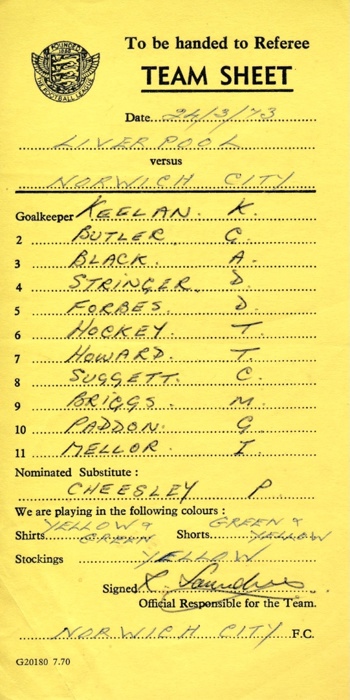 To be handed to Referee
TEAM SHEET
THE FOOTBALL LEAGUE
Date 24/3/73
LIVERPOOL
versus
NORWICH CITY
Goalkeeper KEELAN. K.
2 BUTLER G.
3 BLACK. A.
4 STRINGER D.
5 FORBES. D.
6 HOCKEY. T.
7 HOWARD. T.
8 SUGGETT. C.
9 BRIGGS. M.
10 PADDON. G
11 MELLOR. I.
Nominated Substitute :
CHEESLEY P
We are playing in the following colours :
YELLOW & GREEN & 
Shirts GREEN Shorts YELLOW
Stockings YELLOW
Signed Saunders
Official Responsible for the Team.
NORWICH CITY F.C.
G20180 7.70